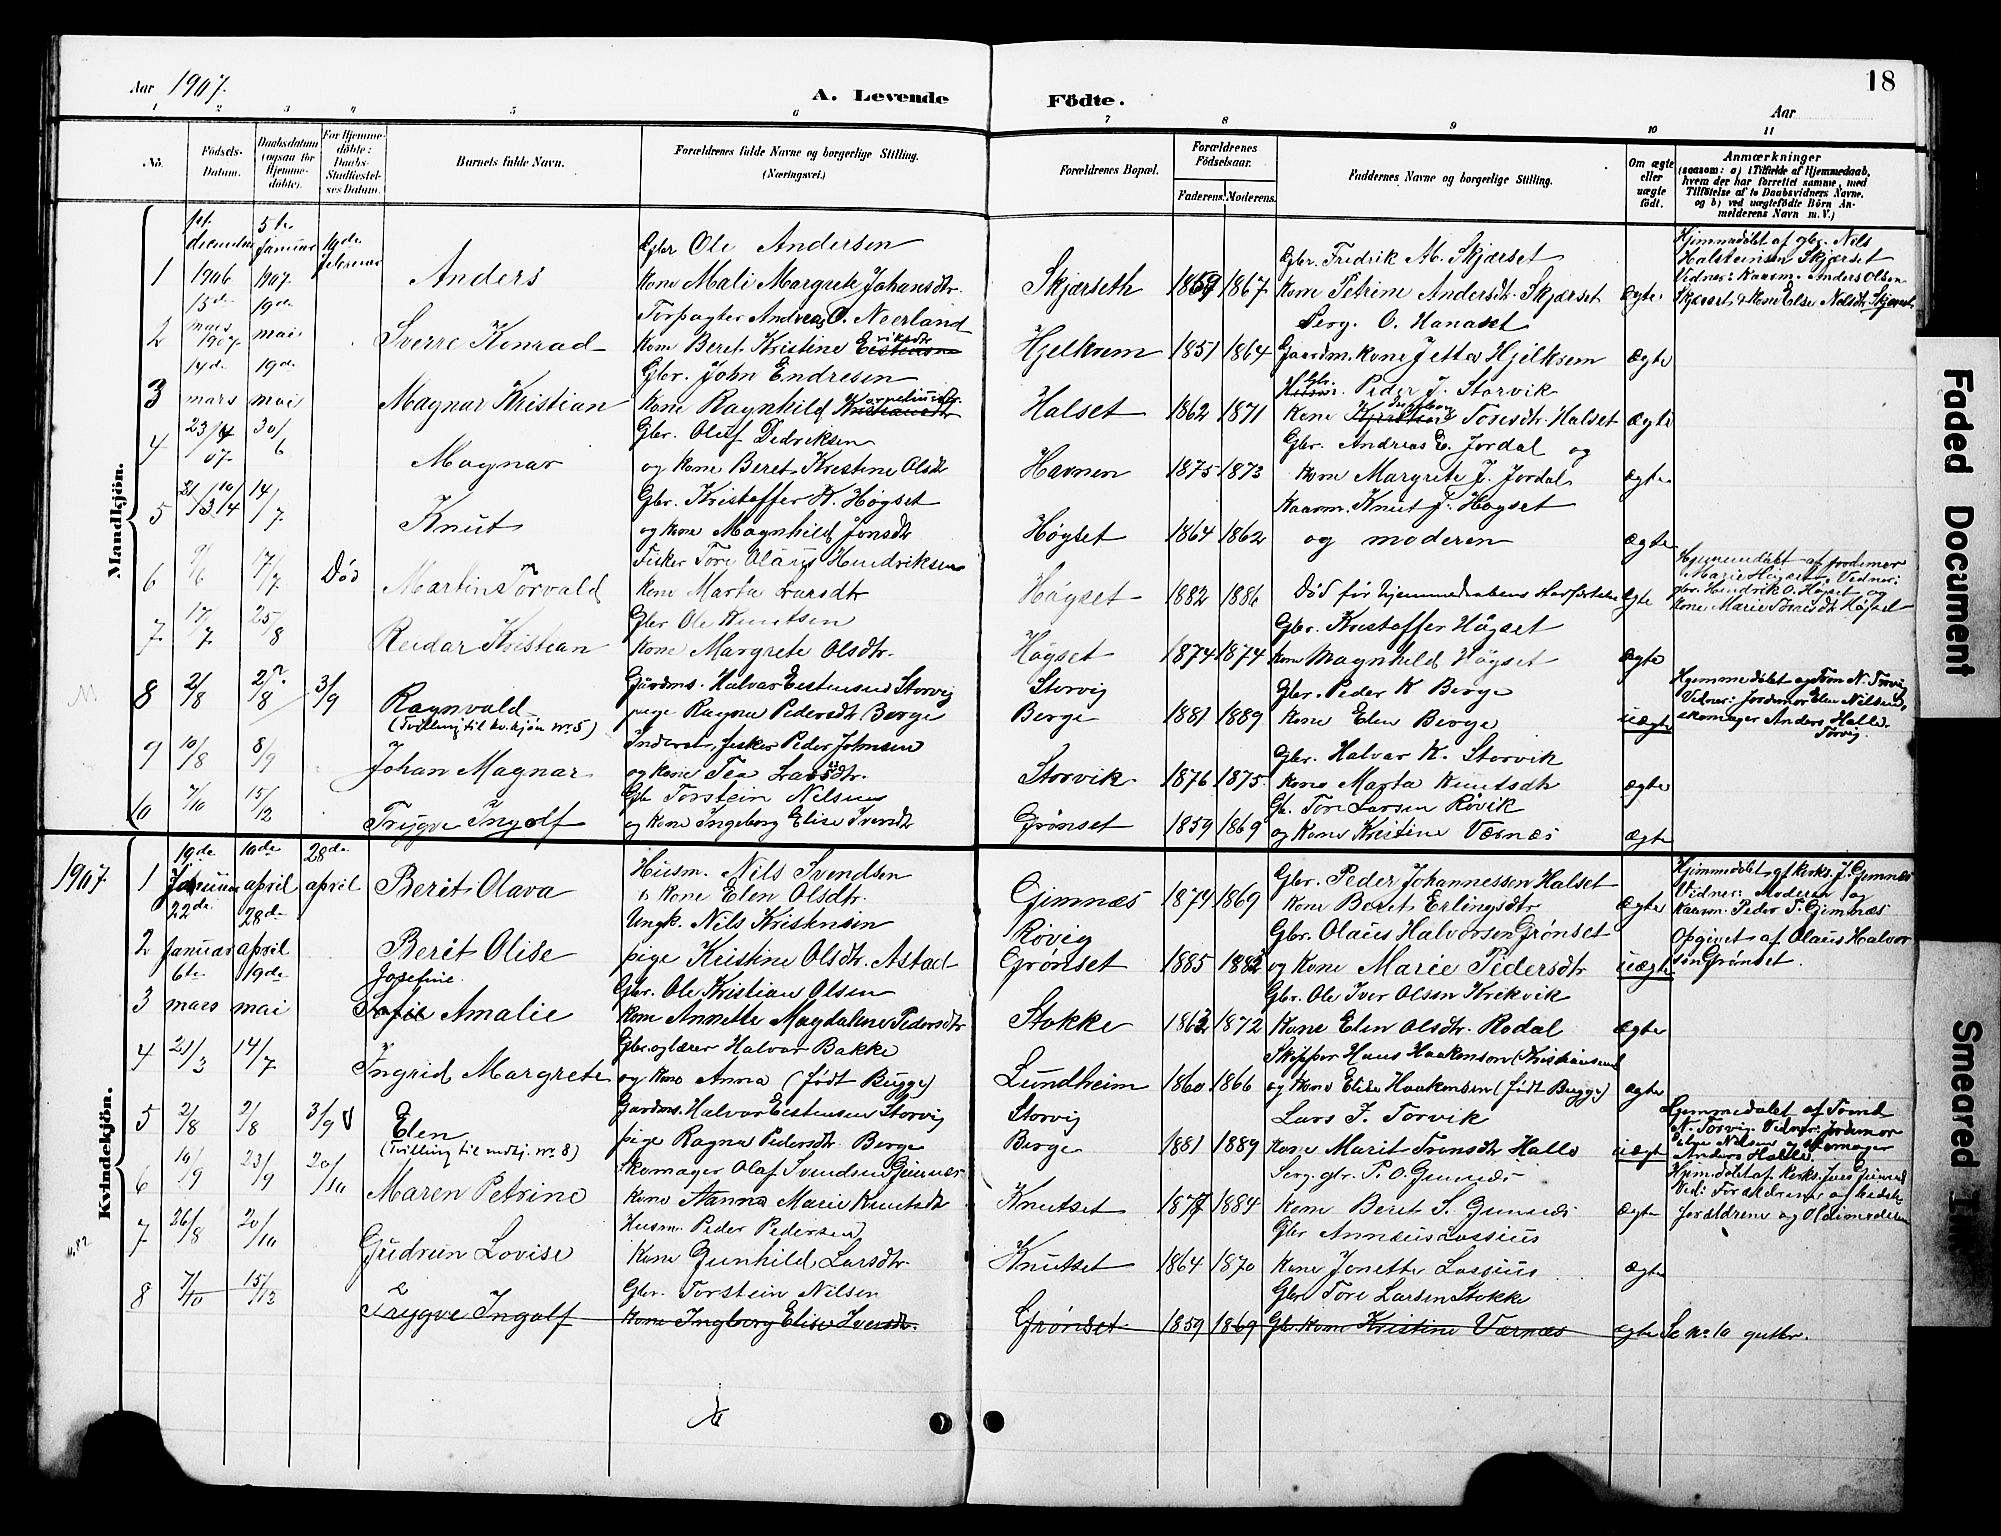 Aar 1907.
A. Levende Födte.
18
Aar
1 2 3 4 5 6 7 8 9 10 11
No. Födsels-Datum. Daabsdatum (ogsaa for Hjemme-döbte). For Hjemme-döbte: Daabs-Stadfæstel-ses Datum. Barnets fulde Navn. Forældrenes fulde Navne og borgerlige Stilling. (Næringsvei.) Forældrenes Bopæl. Forældrenes Födselsaar. Faderens. Moderens. Faddernes Navne og borgerlige Stilling. Om ægte eller uægte födt. Anmærkninger (saasom: a) i Tilfælde af Hjemmedaab, hvem der har forrettet samme, med Tilföielse af to Daabsvidners Navne, og b) ved uægtefödte Börn An-melderens Navn m. V.)
Mandkjön.
1 1st december 1906 5te januar 1907. 19de februar Anders Gbr Ole Andersen
Kone Mali Margrete Johansdtr. Skjærseth 1859 1867 Gbr. Fredrik A. Skjærset
Kone Petrine Andersdt. Skjærset ægte Hjemmedöbt af gbr. Nils
Halsteinsen Skjærset
Vidner: Kaarm. Anders Olsen
Skjærset & Kone Else Nilsdtr Skjærset
2 15de mars 1907 19de mai Sverre Konrad Forpagter Andreas O. Neerland
Kone Beret Kristine Eriksdtr Hjelkrem 1851 1864 Serg. O. Hanaset
Gaardm. Kone Jetta Hjelksem Ægte
3 14de mars 19de mai Magnar Kristian Gbr. John Endresen
Kone Ragnhild Korneliusdtr. Kristiansdtr Halset 1862 1871 Gbr. Peder J. Storvik
Kone Ingeborg Toresdtr. Halset ægte
4 23/4 07. 30/6 Magnar Gbr. Oluf Dedriksen
og Kone Beret Kristine Olsdtr Havnen 1875 1873 Gbr. Andreas E. Jordal og
Kone Margrete J. Jordal ægte
5 14/7 Knut Gbr. Kristoffer K. Högset
og Kone Magnhild Jonsdtr Högset 1864 1862 Kaarm. Knut J. Högset
og moderen ægte
6 9/6 17/7 Död Martin Torvald Fisker Tore Olaus Hendriksen
Kone Marta Larsdtr Högset 1882 1886 Död för hjemmedaabens stadfæstelse Ægte Hjemmedöbt af jordemor
Marie Högset. Vidner:
gbr. Hendrik O. Högset og
Kone Marie Toresdtr Högset
7 17/7 25/8 Reidar Kristian Gbr Ole Knutsen
Kone Margrete Olsdtr. Högset 1874 1874 Gbr. Kristoffer Högset
Kone Magnhild Högset ægte
8 2/8 2/8 3/9 Ragnvald
(Tvilling til kv. kjön nr. 5) Gaardms. Halvar Eestensen Storvig
pige Ragna Pedersdtr. Berge Storvig
Berge 1881 1889 Gbr. Peder K Berge
Kone Elen Berge uægte Hjemmedöbt af N. Torvig
Vidner: Jordmor Elen Nilsen,
skomager Anders Halle.
Torvig.
9 10/8 8/9 Johan Magnar Inderst, fisker Peder Johnsen
og Kone Tea Larsdtr. Storvik. 1876 1875. Gbr. Halvar K. Storvik
Kone Marta Knutsdtr ægte
10 7/10 15/12 Trygve Ingolf Gbr Torstein Nilsen
og Kone Ingeborg Elise Iversdtr Grönset 1859 1869 Gb. Tore Larsen Rövik
og Kone Kristine Værnæs ægte
1907.
Kvindekjön.
1 19de Januar 10de april 28de april Berit Olava Husm. Nils Svendsen
& Kone Elen Olsdtr. Gimnæs 1874 1869 Gbr. Peder Johannessen Halset
Kone Beret Erlingsdtr ægte Hjemmedöbt af Kirks. J. Gimnæs
Vidner: Moderen og
Kaarm. Peder T. Gimnæs
2 22de Januar 28de april Berit Olise Ungk. Nils Kristensen
pige Kristine Olsdtr. Astad Rövig
Grönset 1885 1882 Gbr. Olaus Halvorsen Grönset
og Kone Marie Pedersdtr uægte Opgivet af Olaus Halvor
sen Grönset.
3 6te mars 19de mai Josefine
Sofie Amalie Gbr. Ole Kristian Olsen
Kone Annette Magdalene Pedersdtr Stokke 1862 1872 Gbr. Ole Iver Olsen Krekvik
Kone Elen Olsdtr. Rodal ægte
4 21/3 14/7 Ingrid Margrete Gbr. og lærer Halvar Bakke
og Kone Anna (födt Bugge) Lundheim 1860 1866 Skipper Hans Haakensen (Kristiansund)
og Kone Elise Haakensen (födt Bugge) ægte
5 2/8 2/8 3/9 Elen
(Tvilling til mdkj. nr 8) Gaardms. Halvar Eestensen Storvig
pige Ragna Pedersdtr. Berge Storvig
Berge 1881 1889 Lars J. Torvik
Kone Marit Tronsdtr Halle uægte Hjemmedøbt af
N. Torvig. Vidner: Jordemor
Elen Nilsen og skomager
Anders Halle.
6 19/9 23/9 20/10 Maren Petrine Skomager Olaf Svendsen Gimnæs
Kone Hanna Marie Knutsdtr Knutset 1877 1884 Serg. gbr. P. O. Gimnæs
Kone Beret S. Gimnæs ægte Hjemdöbt af Kirks. Jens Gimnæs
Vid: Forældrene
forældrene og Oldemoderen
7 26/8 20/10 Gudrun Lovise Husm. Peder Pedersen
Kone Gunhild Larsdtr. Knutset 1864 1870 Gbr Annæus Lossius
Kone Jonette Lossius ægte
8 7/10 15/12 Trygve Ingolf Gbr. Torstein Nilsen
Kone Ingeborg Elise Iversdtr. Grönset 1859 1869 Gbr Tore Larsen Stokke
Gbr Kone Kristine Værnæs ægte Se nr 10 gutter.
Faded Document
Smeared Ink